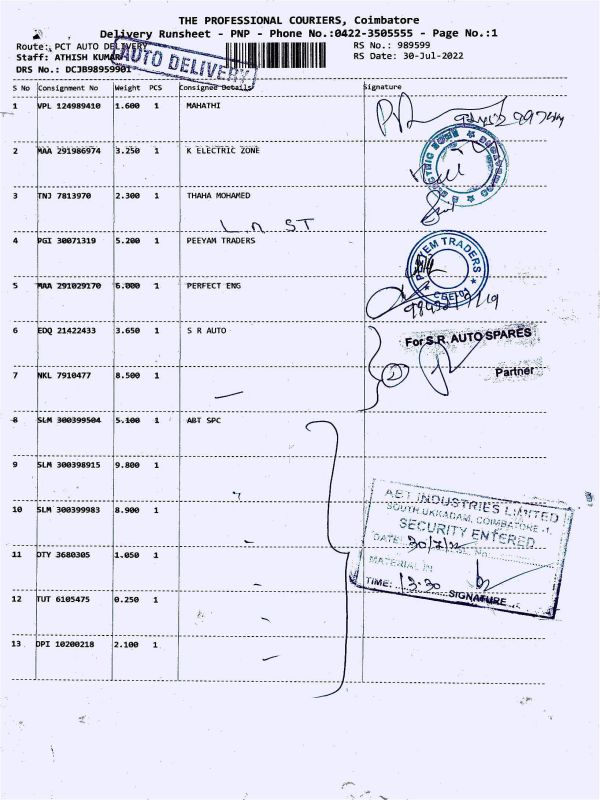 THE PROFESSIONAL COURIERS, Coimbatore
Delivery Runsheet - PNP - Phone No.:0422-3505555 - Page No.:1
Route: PCT AUTO DELIVERY
RS No.: 989599
Staff: ATHISH KUMAR
RS Date: 30-Jul-2022
DRS No.: DCJB98959901
AUTO DELIVERY
S No Consignment No Weight PCS Consignee Details Signature
1 VPL 124989410 1.600 1 MAHATHI
2 MAA 291986974 3.250 1 K ELECTRIC ZONE
3 TNJ 7813970 2.300 1 THAHA MOHAMED
L.n ST
4 PGI 30071319 5.200 1 PEEYAM TRADERS
PEEYEM TRADERS
5 MAA 291029170 6.000 1 PERFECT ENG
6 EDQ 21422433 3.650 1 S R AUTO
For S.R. AUTO SPARES
2
Partner
7 NKL 7910477 8.500 1
8 SLM 300399504 5.100 1 ABT SPC
9 SLM 300398915 9.800 1
10 SLM 300399983 8.900 1
11 OTY 3680305 1.050 1
12 TUT 6105475 0.250 1
13 DPI 10200218 2.100 1
ABT INDUSTRIES LIMITED
SOUTH UKKADAM, COIMBATORE -1.
SECURITY ENTERED
DATE: 30/7/22 No.
MATERIAL IN
TIME: 13-30 SIGNATURE